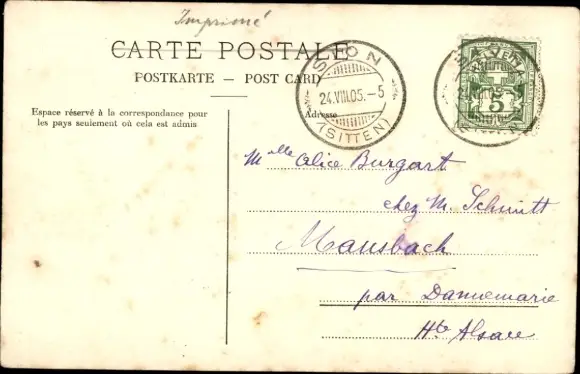 Imprimé
CARTE POSTALE
POSTKARTE — POST CARD
Espace réservé à la correspondance pour
les pays seulement où cela est admis
SION
24.VIII.05.-5
(SITTEN)
Adresse
5
Mlle Alice Burgart
chez M. Schmitt
Mansbach
par Dannemarie
Hte Alsace